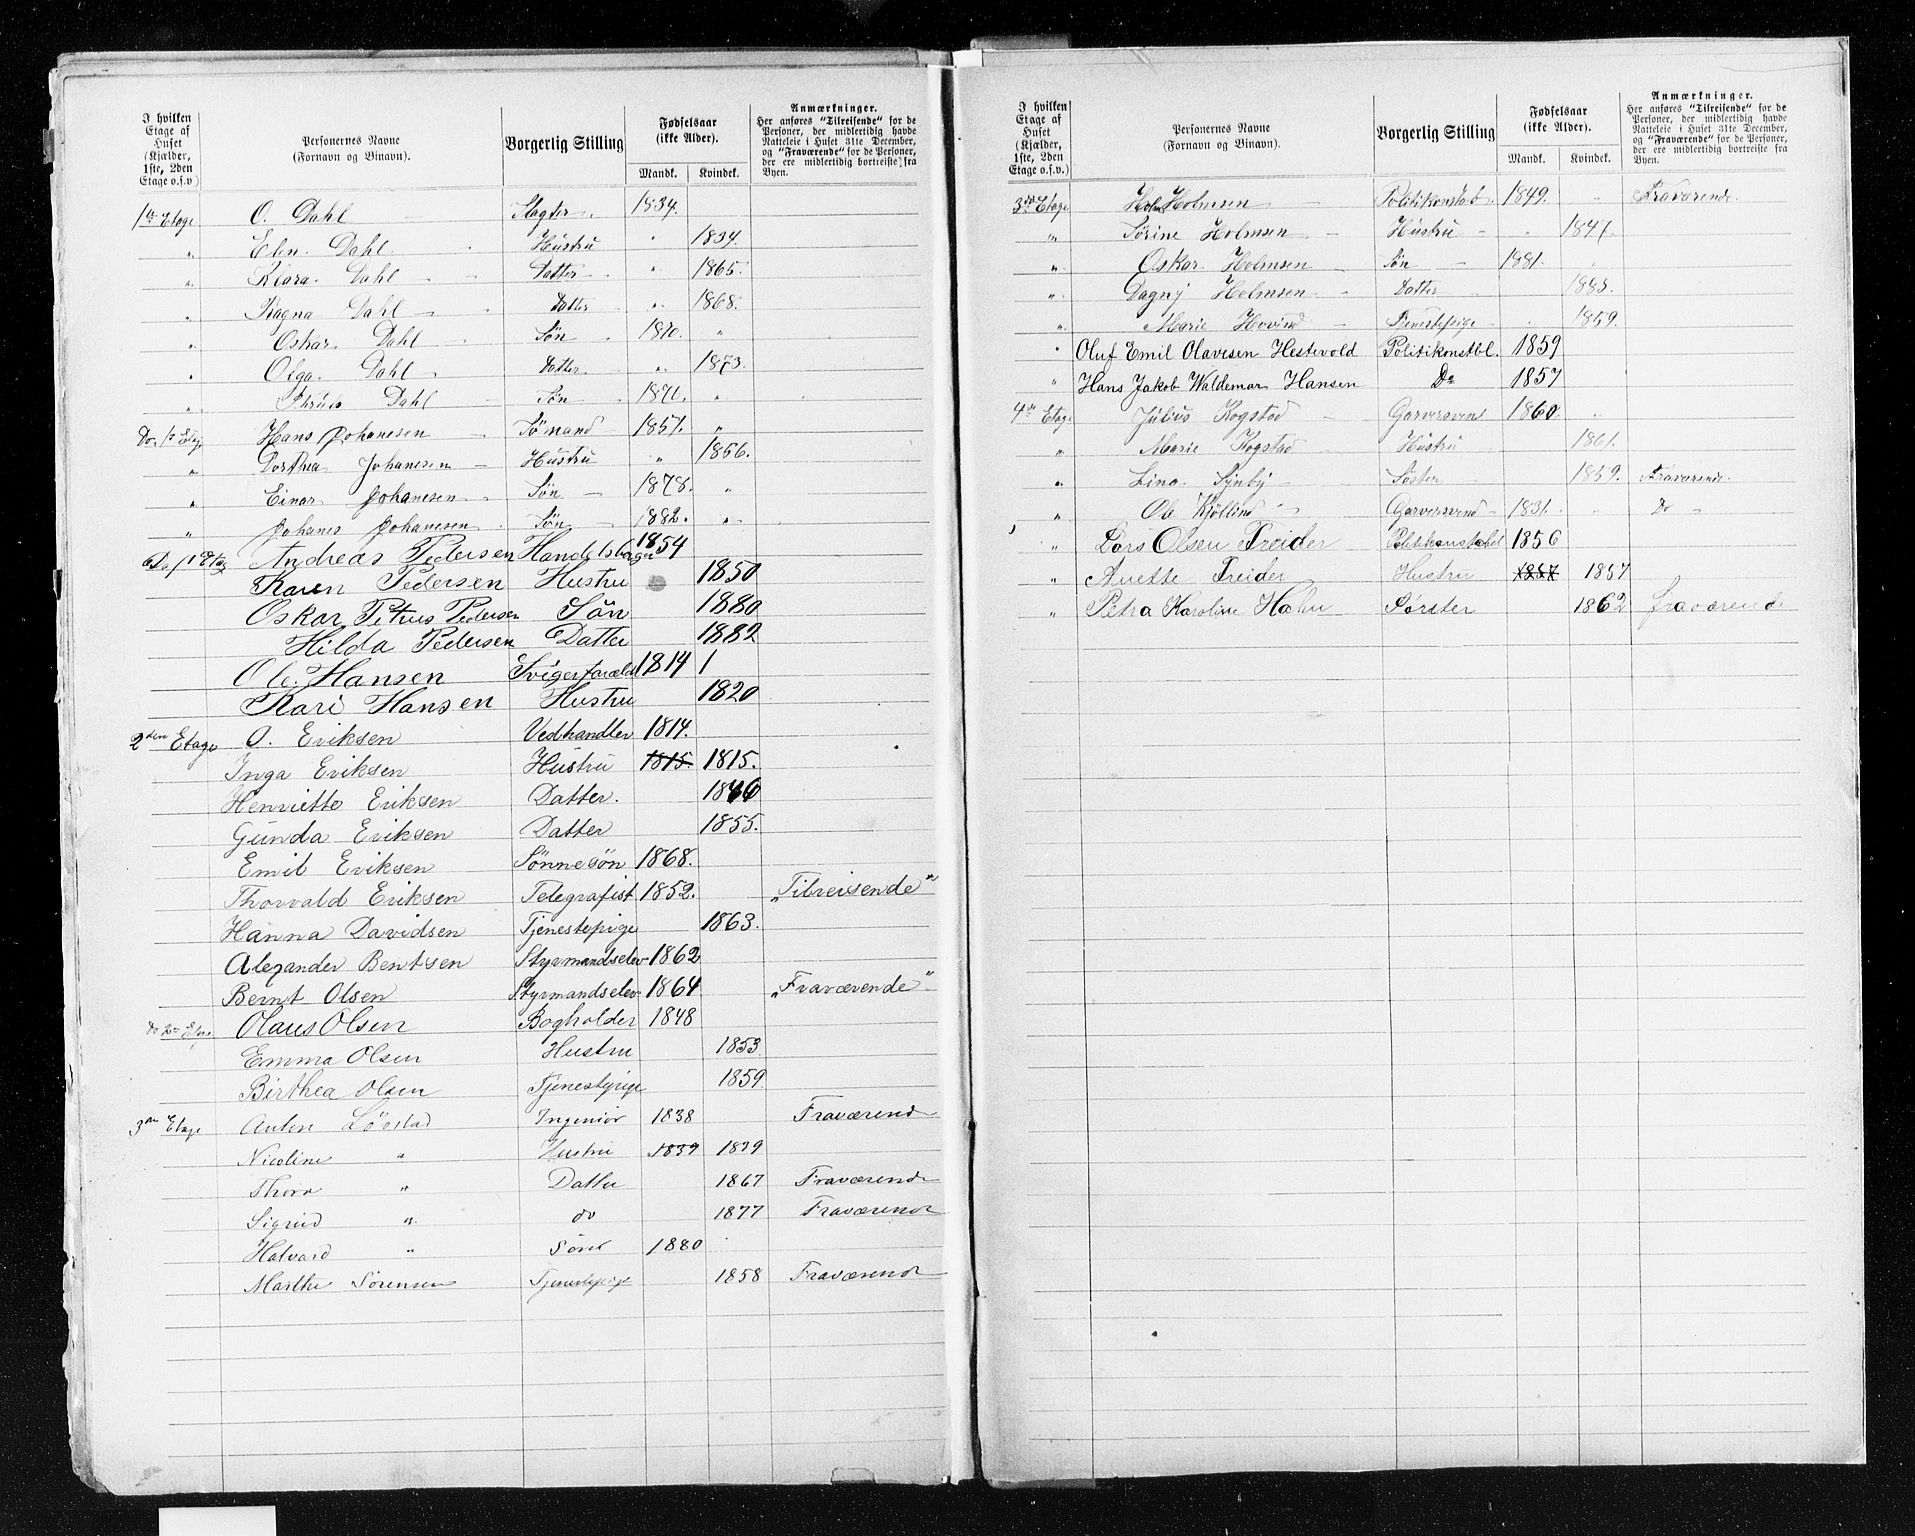 I hvilken Etage af Huset (Kjælder, 1ste, 2den Etage o.s.v.) Personernes Navne (Fornavn og Binavn). Borgerlig Stilling Fødselsaar (ikke Alder). Mandk. Kvindek. Anmærkninger. Her anføres "Tilreisende" for de Personer, der midlertidig havde Natteleie i Huset 31te December, og "Fraværende" for de Personer, der ere midlertidig bortreiste fra Byen.
1ste Etage O. Dahl Slagter 1834.
" Elen Dahl Hustru " 1834.
" Klara Dahl Datter " 1865.
" Ragna Dahl Datter " 1868.
" Oskar Dahl Søn 1870. "
" Olga Dahl Datter " 1873.
" Dahl Søn 1871. "
Do 1ste Etage Hans Johanesen Sømand 1851. "
" Dorthea Johanesen Hustru " 1856.
" Einar Johanesen Søn 1878. "
" Johanes Johanesen Søn 1882. "
Do 1 Etag Andreas Pedersen Handelsborger 1854
Karen Pedersen Hustru 1850
Oskar Petrus Pedersen Søn 1880
Hilda Pedersen Datter 1882
Ole Hansen Svigerforæld 1814 1
Kari Hansen Hustru 1820
2den Etage O. Eriksen Vedhandler 1814.
Inga Eriksen Hustru 1815. 1815.
Henriette Eriksen Datter. 1846
Gunda Eriksen Datter 1855.
Emil Eriksen Sønnesøn 1868.
Thorvald Eriksen Telegrafist 1852. „Tilreisende"
Hanna Davidsen Tjenestepige 1863.
Alexander Bentsen Styrmandselev 1862
Bernt Olsen Styrmandselev 1864 „Fraværende"
Do 2den Etage Olaus Olsen Bogholder 1848
Emma Olsen Hustru 1853
Birthea Olsen Tjenestepige 1859
3die Etage Anton Løvstad Ingeniør 1838 Fraværend
Nicoline " Hustru 1839 1839
Thora " Datter 1867 Fraværend
Sigrid " do 1877 Fraværend
Halvard " Søn 1880
Marthe Sørensen Tjenestepige 1858 Fraværend
I hvilken Etage af Huset (Kjælder, 1ste, 2den Etage o.s.v.) Personernes Navne (Fornavn og Binavn). Borgerlig Stilling Fødselsaar (ikke Alder). Mandk. Kvindek. Anmærkninger. Her anføres "Tilreisende" for de Personer, der midlertidig havde Natteleie i Huset 31te December, og "Fraværende" for de Personer, der ere midlertidig bortreiste fra Byen.
3die Etage Holmsen Politikonstab. 1849. " Fraværende.
" Sørine Holmsen Hustru " 1847.
" Oskar Holmsen Søn 1881. "
" Dagny Holmsen Datter 1883.
" Marie Hovind Tjenestepige 1859.
" Oluf Emil Olavesen Hestevold Politikonstbl. 1859
" Hans Jakob Waldemar Hansen Do 1857
4de Etage Julius Kogstad Garversvend 1860. "
" Marie Kogstad Hustru 1861.
" Lina Synbye Søster 1859. Fraværende.
" Ole Kjøllind Garversvend 1831. " Do
" Lars Olsen Freider Politikonstabel 1856
" Anette Freider Hustru 1857 1857
" Petra Karoline Hahn Sørster 1862 fraværende